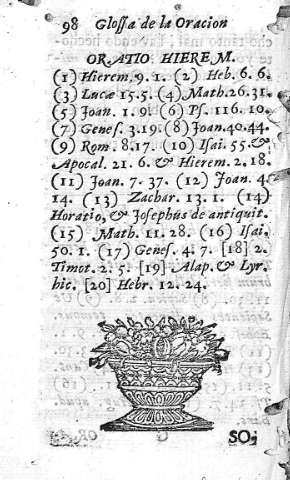 98 Glossa de la Oracion
ORATIO HIEREM.
(1) Hierem. 9. 1. (2) Heb. 6. 6.
(3) Lucæ 15. 5. (4) Math. 26. 31.
(5) Joan. 1. 9. (6) Ps. 116. 10.
(7) Genes. 3. 19. (8) Joan. 40. 44.
(9) Rom. 8. 17. (10) Isai. 55. &
Apocal. 21. 6. & Hierem. 2. 18.
(11) Joan. 7. 37. (12) Joan. 4.
14. (13) Zachar. 13. 1. (14)
Horatio, & Josephus de antiquit.
(15) Math. 11. 28. (16) Isai.
50. 1. (17) Genes. 4. 7. [18] 2.
Timot. 2. 5. [19] Alap. & Lyr.
hic. [20] Hebr. 12. 24.
SO;